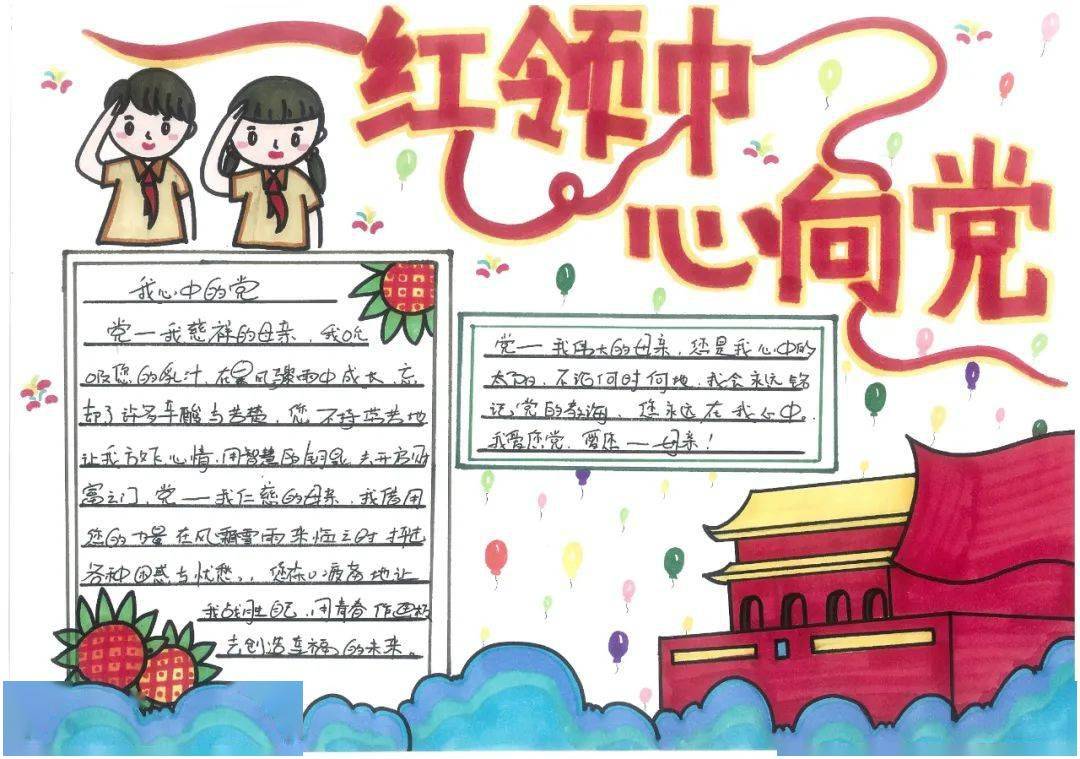 红领巾
心向党
我心中的党
党一我慈祥的母亲，我吮
吸您的乳汁，在暴风骤雨中成长，忘
却了许多辛酸与苦楚，您不辞劳苦地
让我放下心情，用智慧的钥匙，去开启财
富之门，党一我仁慈的母亲，我借用
您的力量在风霜雪雨来临之时
各种困惑与忧愁，，您在地让
我战胜自己，用青春作画板
去创造幸福的未来。
党一我伟大的母亲，您是我心中的
太阳，不论何时何地，我会永远铭
记，党的教诲、您永远在我心中。
我爱您党，爱您一一母亲！